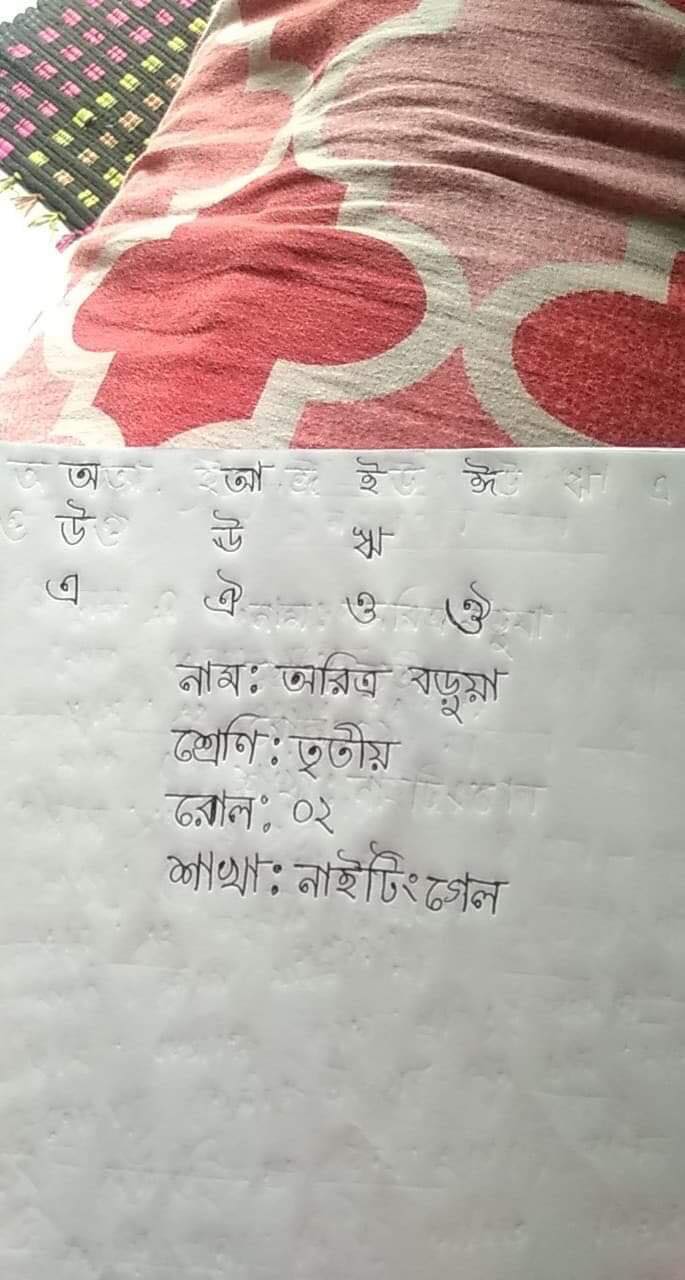 অ আ ই ঈ
উ ঊ ঋ
এ ঐ ও ঔ
নাম: অরিত্র বড়ুয়া
শ্রেণি: তৃতীয়
রোল: ০২
শাখা: নাইটিংগেল